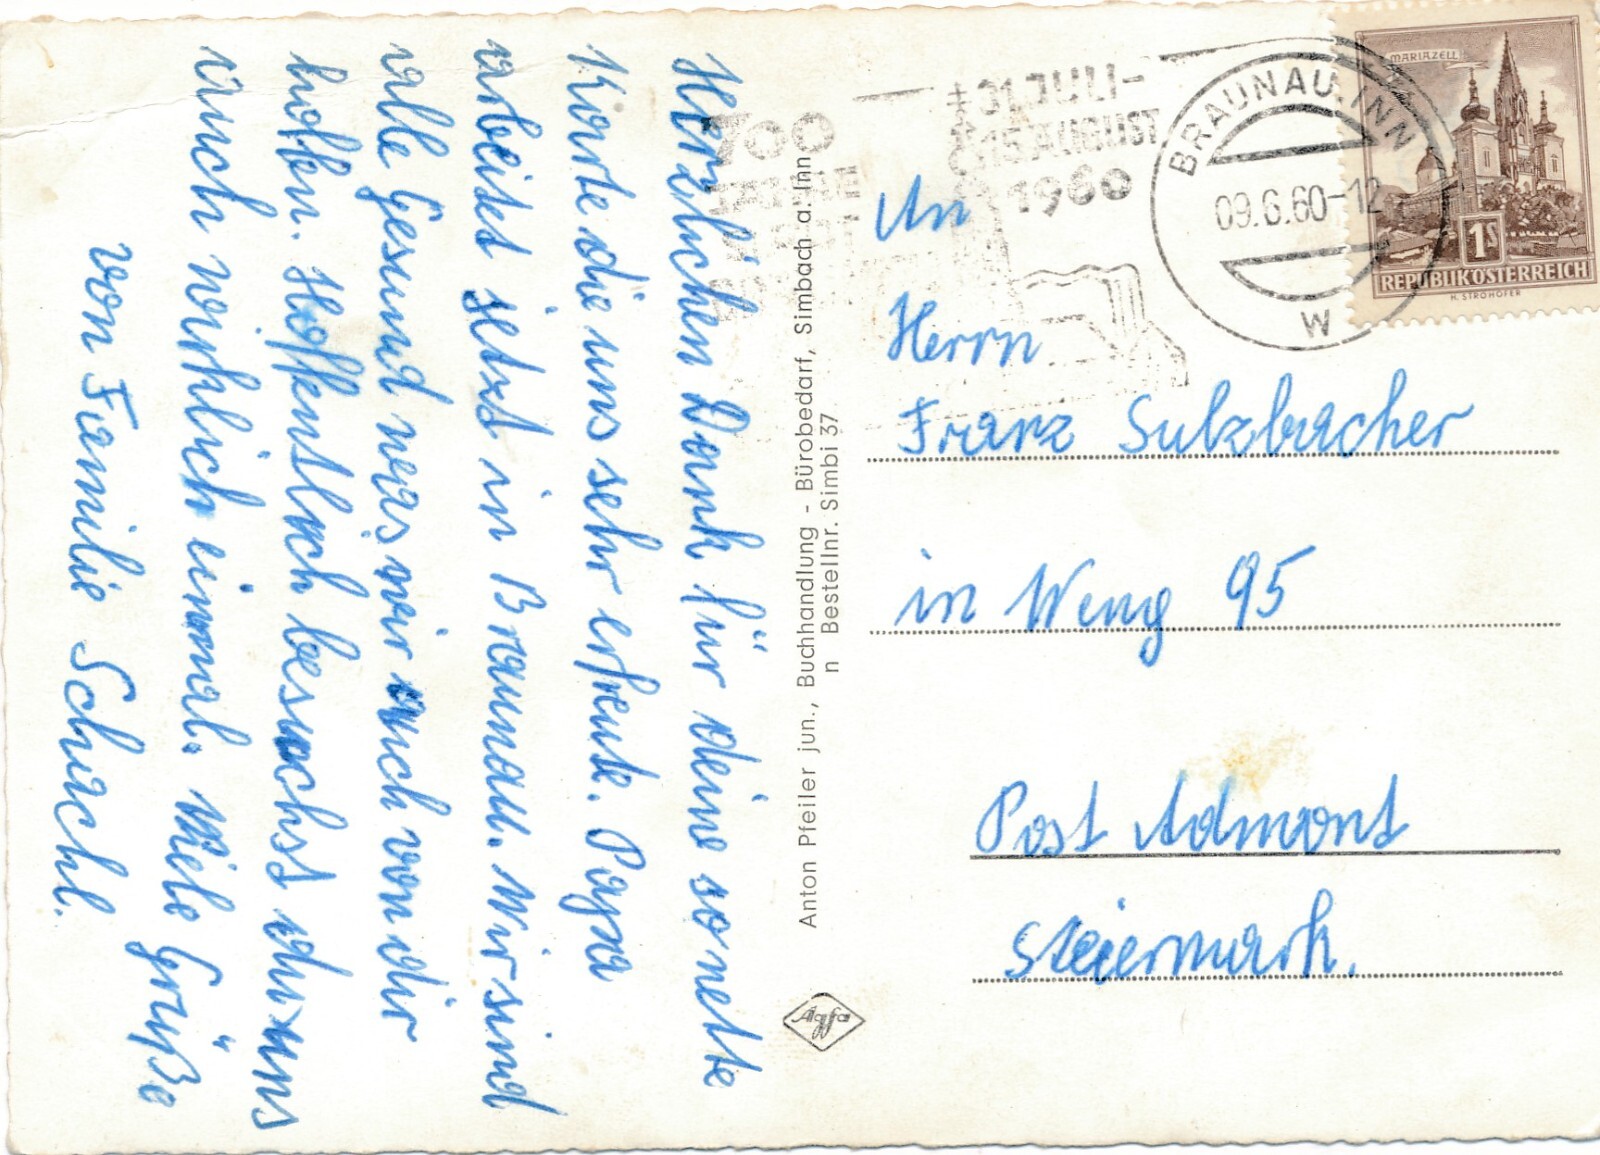 Herzlichen Dank für deine so nette
Karte die uns sehr erfreute. Papa
arbeitet jetzt in Braunau. Wir sind
alle Gesund was wir auch von dir
hoffen. Hoffentlich besuchst du uns
auch wirklich einmal. Viele Grüße
von Familie Schachl.
Anton Pfeiler jun., Buchhandlung - Bürobedarf, Simbach a. Inn
n Bestellnr. Simbi 37
Agfa
31. JULI-
15. AUGUST
1960
BRAUNAU, INN
09.6.60-12
W
MARIAZELL
1S
REPUBLIK ÖSTERREICH
H. STROHOFER
An
Herrn
Franz Sulzbacher
in Weng 95
Post Admont
Steiermark.